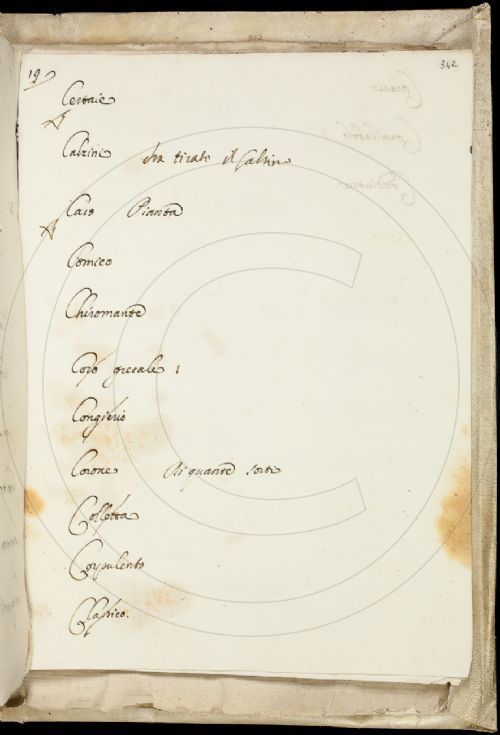 19
342
Certaie
Calzini ha tirato il Calzino
Caio Pianta
Comico
Chiromante
Coro
Congiario
Corone di quante sorti
Colletta
Corpulento
Classico.